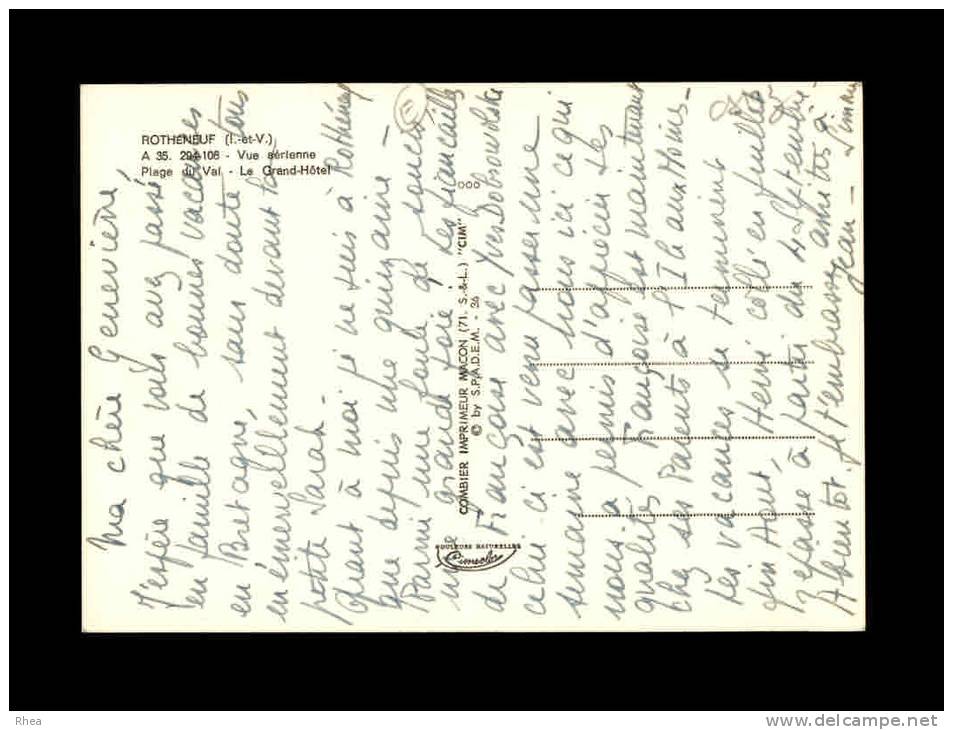 ROTHENEUF (I.-et-V.)
A 35. 294-106 - Vue aérienne
Plage du Val - Le Grand-Hôtel
COMBIER IMPRIMEUR MACON (71. S.-&-L.) "CIM"
© by S.P.A.D.E.M. - 36
COULEURS NATURELLES
Cimecolor
Ma chère Geneviève,
J'espère que vous avez passé
en famille de bonnes vacances
en Bretagne, sans doute tous
en émerveillement devant ta
petite Sarah -
Quant à moi je ne suis à Rothéneuf
que depuis une quinzaine -
Parmi une foule de soucis
une grande joie, les fiançailles
de Françoise avec Yves
celui ci est venu passer une
semaine avec nous ici ce qui
nous a permis d'apprécier ses
qualités. Françoise est maintenant
chez ses Parents à
Les vacances se terminent
fin Août, Henri collé en Juillet
repasse à partir du 4 Septembre -
A bientôt je t'embrasse amitiés à
Jean -
Rhea
www.delcampe.net